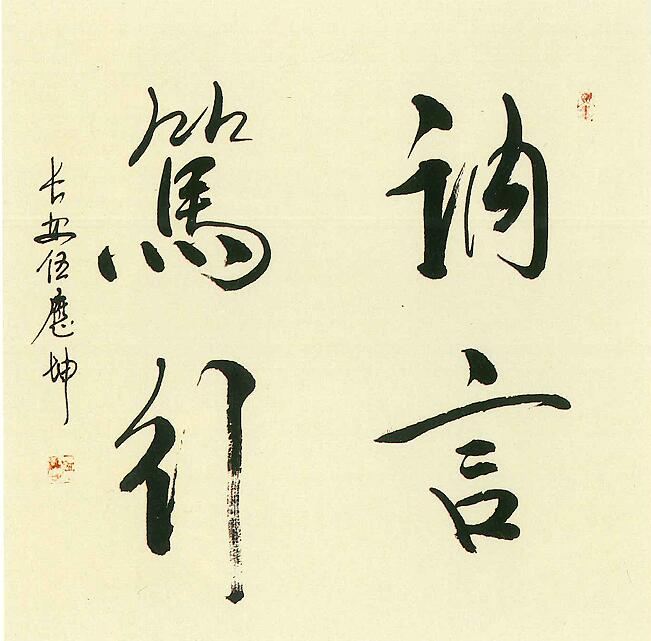 訥言
篤行
长安伍應坤